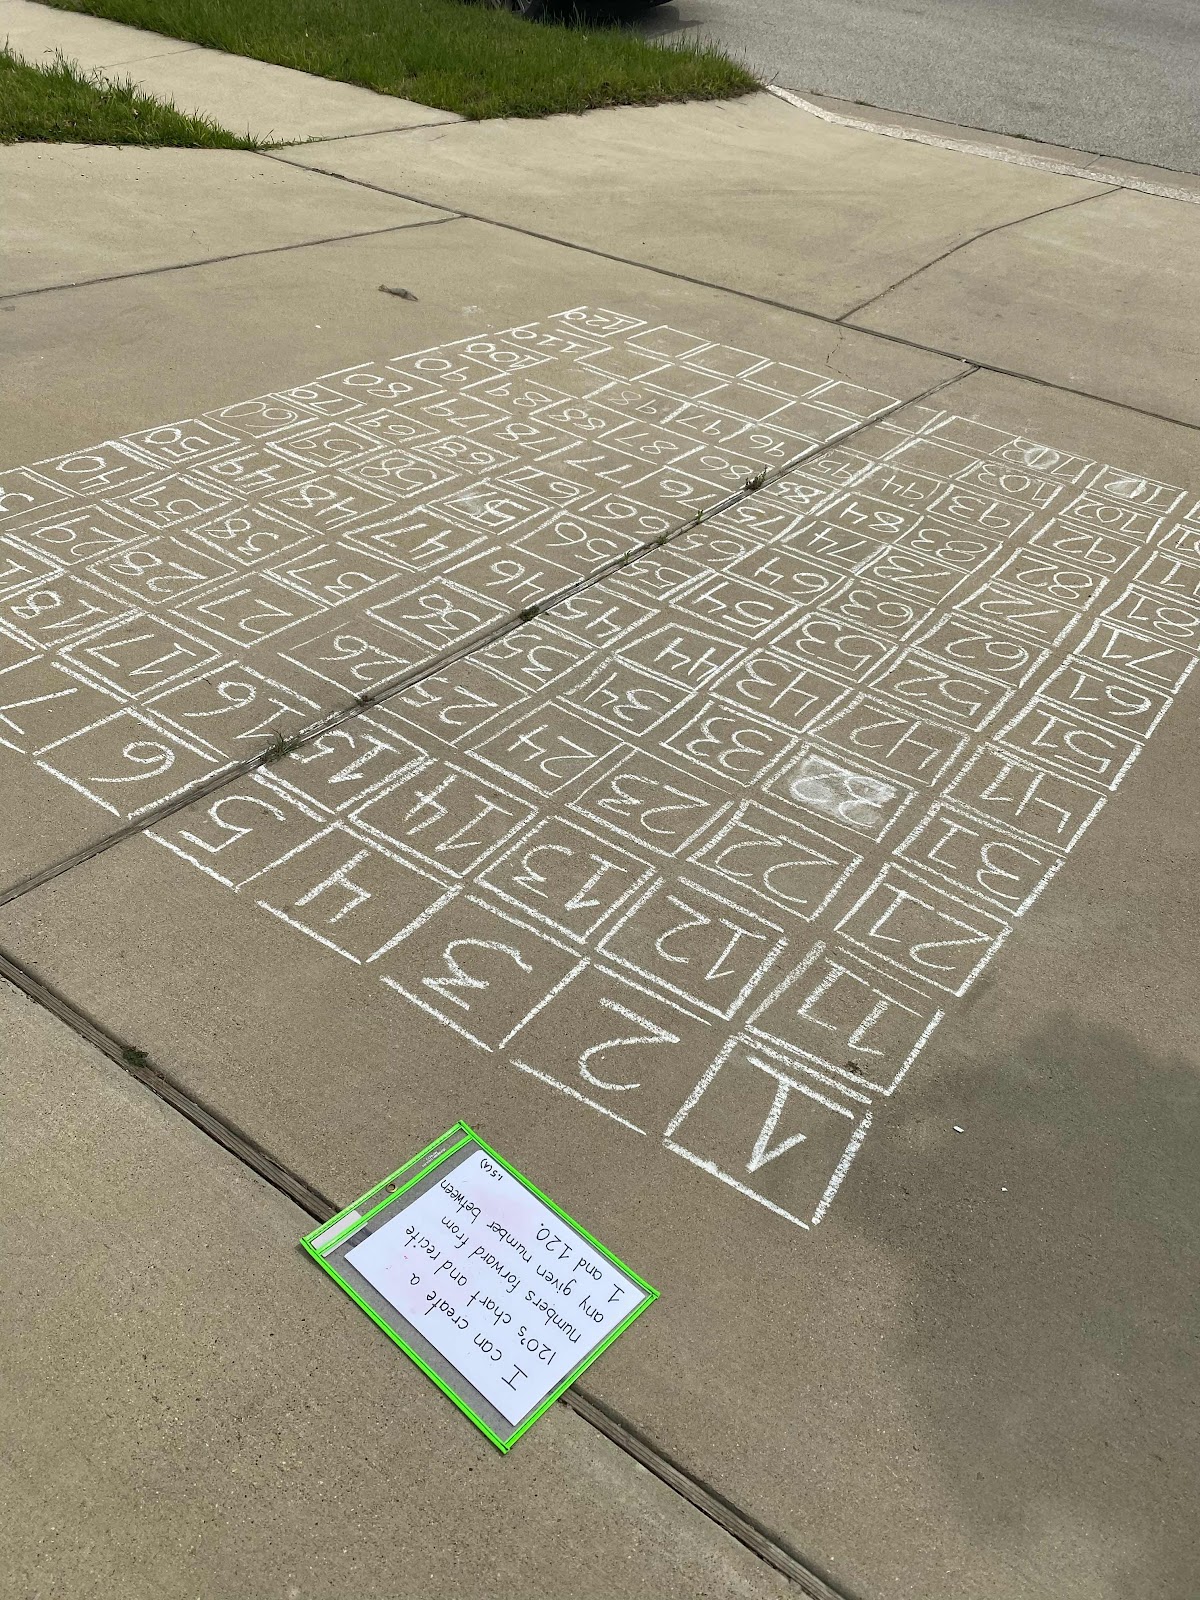 1 2 3 4 5 6 7
11 12 13 14 15 16 17 18
21 22 23 24 25 26 27 28 29
31 33 34 35 36 37 38 39 40
41 42 43 44 45 46 47 48 49 50
51 52 53 54 55 56 57 58 59 60
61 62 63 64 65 66 67 68 69 70
71 72 73 74 75 76 77 78 79 80
81 82 83 84 85 86 87 88 89 90
92 93 94 95 96 97 98 99 100
102 103 110
120
I can create a
120's chart and recite
numbers forward from
any given number between
1 and 120.
1.5(A)